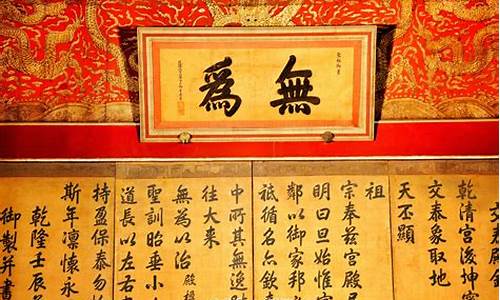 無爲
乾清宮後坤寧
文泰象取地
天丕顯
祖
宗奉茲宮殿
明曰旦始惟
鄰以御家邦
祗循名
中所其無逸
往大来
無為以治
聖訓昭垂小
道長以左右
持盈保泰勿
斯年凛懷永
乾隆壬辰
御製并書